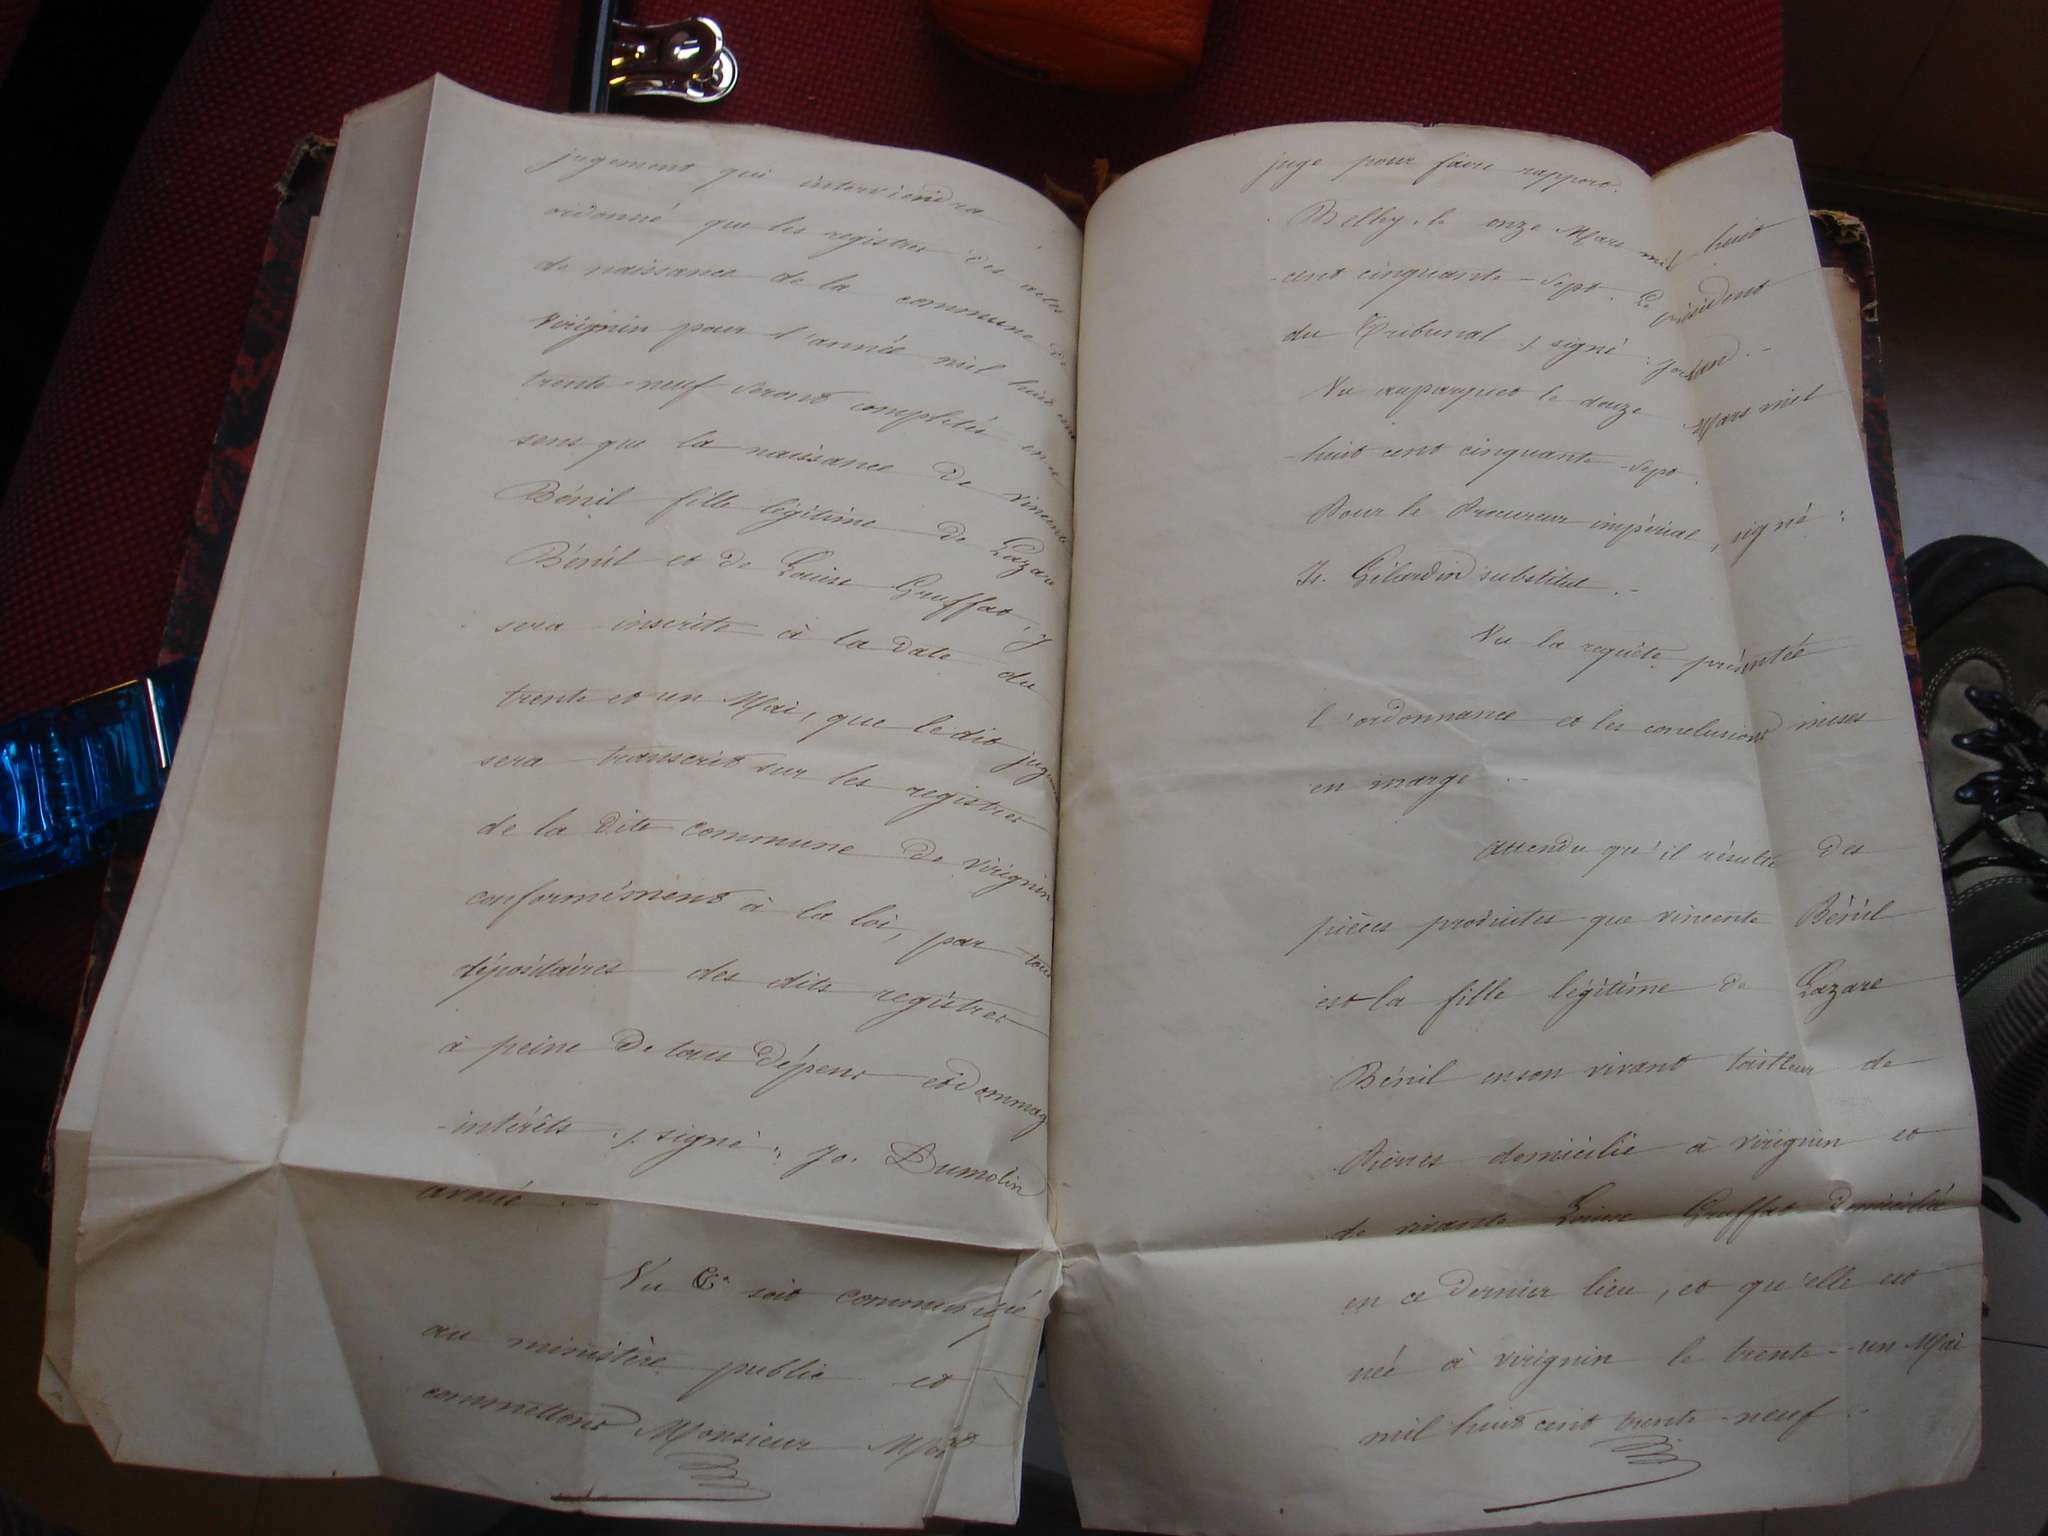 jugement qui interviendra
ordonné que les registres des actes
de naissance de la commune de
Virignin pour l'année mil huit cent
trente-neuf seront complétés en ce
sens que la naissance de vincente
Bénil fille légitime de Lazare
Bénil et de Louise Gruffat, y
sera inscrite à la date du
trente et un Mai, que le dit juge
sera transcrit sur les registres
de la dite commune de virignin
conformément à la loi, par tous
dépositaires des dits registres
à peine de tous dépens et dommag
-intérêts ./. signé: Jh. Dumolin
avoué .-
Vu soit communiqué
au ministère public et
commettons Monsieur
juge pour faire rapport.
Belley, le onze Mars mil huit
-cent cinquante-sept. Le président
du Tribunal ./. signé: Jordan .-
Vu au parquet le douze Mars mil
-huit cent cinquante-sept.
Pour le Procureur impérial, signé:
substitut .-
Vu la requête présentée
l'ordonnance et les conclusions mises
en marge .-
attendu qu'il résulte des
pièces produites que vincente Bénil
est la fille légitime de Lazare
Bénil en son vivant tailleur de
Pierres domicilié à virignin et
de vivante Louise Gruffat domiciliée
en ce dernier lieu, et qu'elle est
née à virignin le trente-un Mai
mil huit cent trente-neuf .-